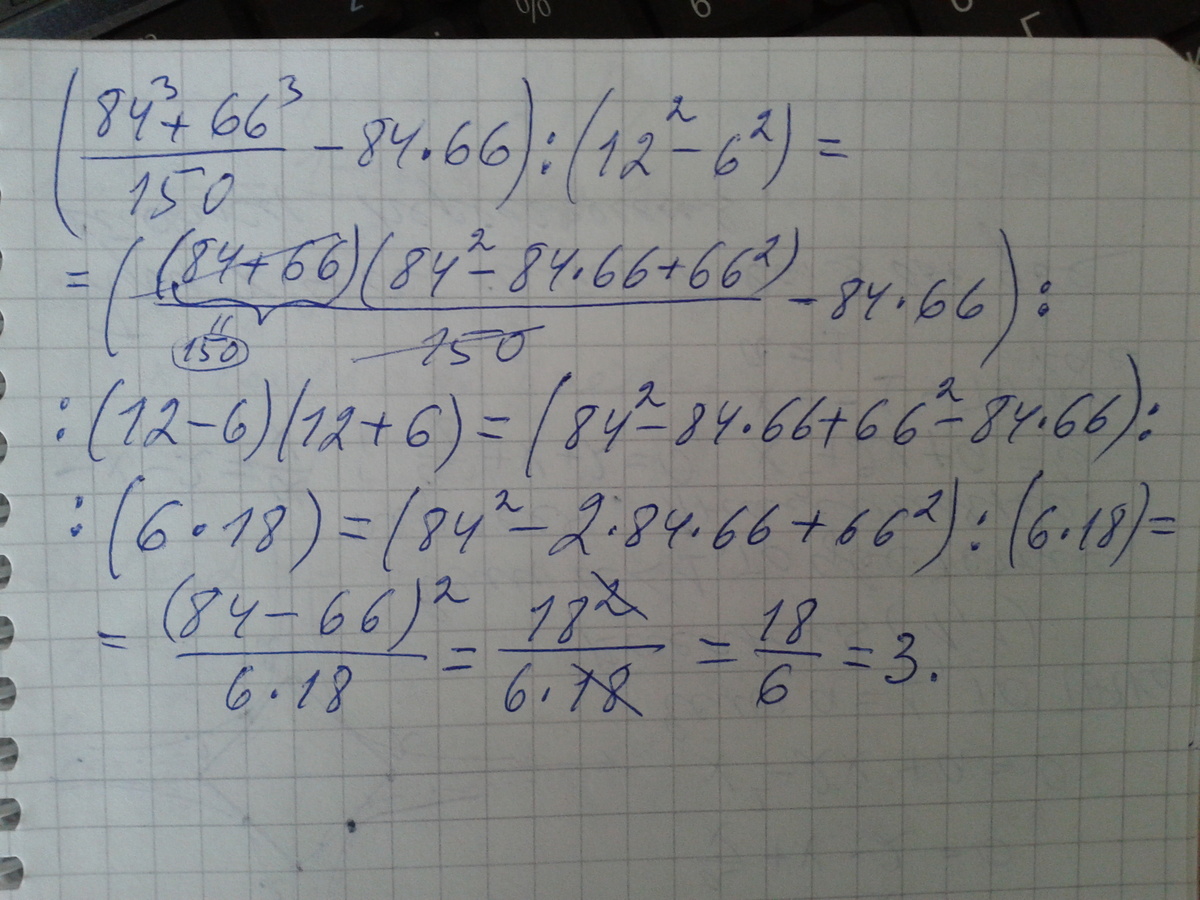 (84³ + 66³ / 150 − 84·66) : (12² − 6²) =
= ((84 + 66)(84² − 84·66 + 66²) / 150 − 84·66) :
150
: (12 − 6)(12 + 6) = (84² − 84·66 + 66² − 84·66) :
: (6·18) = (84² − 2·84·66 + 66²) : (6·18) =
= (84 − 66)² / 6·18 = 18² / 6·18 = 18 / 6 = 3.